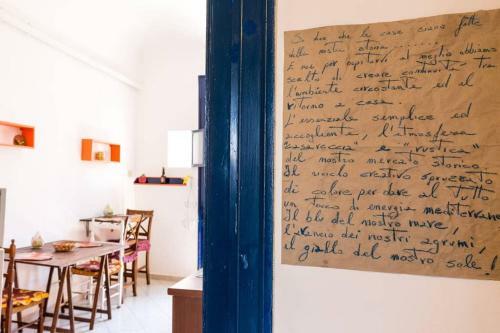 Si dice che le case siano fatte
della nostra storia ......
E noi per ospitarvi al meglio abbiamo
scelto di creare continuità tra
l'ambiente circostante ed il
ritorno a casa.
L'essenziale semplice ed
accogliente, l'atmosfera
"casareccia" e "rustica"
del nostro mercato storico.
Il vicolo creativo spruzzato
di colore per dare al tutto
un tocco di energia mediterranea
Il blu del nostro mare,
l'arancio dei nostri agrumi,
il giallo del nostro sole!